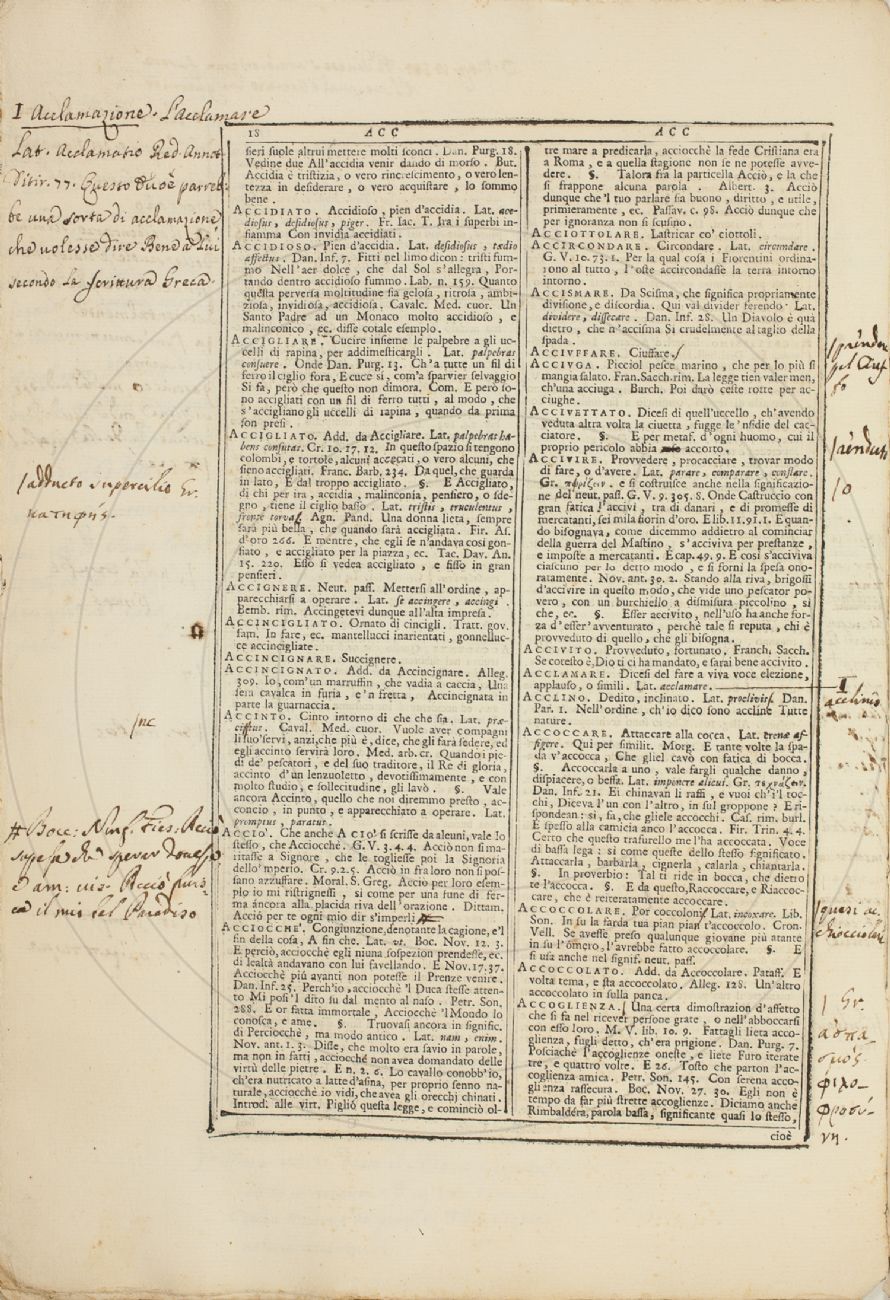 I Acclamazione. L'acclamare
Lat. Acclamatio Red. Annot.
Ditir. 77. Questo Evoè parreb-
be una sorta di acclamazione
che volesse dire Bene a lui
secondo la scrittura Greca.
18 ACC
ACC
sieri suole altrui mettere molti sconci. Dan. Purg. 18.
Vedine due All'accidia venir dando di morso. But.
Accidia è tristizia, o vero rincrescimento, o vero len-
tezza in desiderare, o vero acquistare, lo sommo
bene.
ACCIDIATO. Accidioso, pien d'accidia. Lat. acce-
diosus, desidiosus, piger. Fr. Iac. T. Ira i superbi in-
fiamma Con invidia accidiati.
ACCIDIOSO. Pien d'accidia. Lat. desidiosus, tædio
affectus. Dan. Inf. 7. Fitti nel limo dicon: tristi fum-
mo Nell'aer dolce, che dal Sol s'allegra, Por-
tando dentro accidioso fummo. Lab. n. 159. Quanto
questa perversa moltitudine sia gelosa, ritrosa, ambi-
ziosa, invidiosa, accidiosa. Cavalc. Med. cuor. Un
Santo Padre ad un Monaco molto accidioso, e
malinconico, ec. disse cotale esemplo.
ACCIGLIARE. Cucire insieme le palpebre a gli uc-
celli di rapina, per addimesticargli. Lat. palpebras
consuere. Onde Dan. Purg. 13. Ch'a tutte un fil di
ferro il ciglio fora, E cuce sì, com'a sparvier selvaggio
Si fa, però che questo non dimora. Com. E però so-
no accigliati con un fil di ferro tutti, al modo, che
s'accigliano gli uccelli di rapina, quando da prima
son presi.
ACCIGLIATO. Add. da Accigliare. Lat. palpebras ha-
bens consutas. Cr. 10. 17. 12. In questo spazio si tengono
colombi, e tortole, alcuni accecati, o vero alcuni, che
sieno accigliati. Franc. Barb. 234. Da quel, che guarda
in lato, E dal troppo accigliato. §. E Accigliato,
di chi per ira, accidia, malinconia, pensiero, o sde-
gno, tiene il ciglio basso. Lat. tristis, truculentus,
fronte torva Agn. Pand. Una donna lieta, sempre
sarà più bella, che quando sarà accigliata. Fir. As.
d'oro 266. E mentre, che egli se n'andava così gon-
fiato, e accigliato per la piazza, ec. Tac. Dav. An.
15. 220. Esso si vedea accigliato, e fisso in gran
pensieri.
ACCIGNERE. Neut. pass. Mettersi all'ordine, ap-
parecchiarsi a operare. Lat. se accingere, accingi.
Bemb. rim. Accingetevi dunque all'alta impresa.
ACCINCIGLIATO. Ornato di cincigli. Tratt. gov.
fam. In fare, ec. mantellucci inarientati, gonnelluc-
ce accincigliate.
ACCINCIGNARE. Succignere.
ACCINCIGNATO. Add. da Accincignare. Alleg.
309. Io, com'un marruffin, che vadia a caccia, Una
sera cavalca in furia, e 'n fretta, Accincignata in
parte la guarnaccia.
ACCINTO. Cinto intorno di che che sia. Lat. præ-
cinctus. Caval. Med. cuor. Vuole aver compagni
li suo' servi, anzi, che più è, dice, che gli farà sedere, ed
egli accinto servirà loro. Med. arb. cr. Quando i pie-
di de' pescatori, e del suo traditore, il Re di gloria,
accinto d'un lenzuoletto, devotissimamente, e con
molto studio, e sollecitudine, gli lavò. §. Vale
ancora Accinto, quello che noi diremmo presto, ac-
concio, in punto, e apparecchiato a operare. Lat.
promptus, paratus.
ACCIO'. Che anche A CIO' si scrisse da alcuni, vale lo
stesso, che Acciocchè. G. V. 3. 4. 4. Acciò non si ma-
ritasse a Signore, che le togliesse poi la Signoria
dello 'mperio. Cr. 9. 2. 5. Acciò in fra loro non si pos-
sano azzuffare. Moral. S. Greg. Acciò per loro esem-
plo io mi ristrignessi, si come per una fune di fer-
ma áncora alla placida riva dell'orazione. Dittam.
Acciò per te ogni mio dir s'imperli
ACCIOCCHE'. Congiunzione, denotante la cagione, e 'l
fin della cosa, A fin che. Lat. ut. Boc. Nov. 12. 3.
E perciò, acciocchè egli niuna sospezion prendesse, ec.
di lealtà andavano con lui favellando. E Nov. 17. 37.
Acciocchè più avanti non potesse il Prenze venire.
Dan. Inf. 25. Perch'io, acciocchè 'l Duca stesse atten-
to Mi posi 'l dito su dal mento al naso. Petr. Son.
288. E or fatta immortale, Acciocchè 'l Mondo lo
conosca, e ame. §. Truovasi ancora in signific.
di Perciocchè, ma modo antico. Lat. nam, enim.
Nov. ant. 1. 3. Disse, che molto era savio in parole,
ma non in fatti, acciocchè non avea domandato delle
virtù delle pietre. E n. 2. 6. Lo cavallo conobb'io,
ch'era nutricato a latte d'asina, per proprio senno na-
turale, acciocchè io vidi, che avea gli orecchi chinati.
Introd. alle virt. Pigliò questa legge, e cominciò ol-
tre mare a predicarla, acciocchè la fede Cristiana era
a Roma, e a quella stagione non se ne potesse avve-
dere. §. Talora fra la particella Acciò, e la che
si frappone alcuna parola. Albert. 3. Acciò
dunque che 'l tuo parlare sia buono, diritto, e utile,
primieramente, ec. Passav. c. 98. Acciò dunque che
per ignoranza non si scusino.
ACCIOTTOLARE. Lastricar co' ciottoli.
ACCIRCONDARE. Circondare. Lat. circumdare.
G. V. 10. 73. 1. Per la qual cosa i Fiorentini ordina-
rono al tutto, l'oste accircondasse la terra intorno
intorno.
ACCISMARE. Da Scisma, che significa propriamente
divisione, e discordia. Qui val divider ferendo. Lat.
dividere, dissecare. Dan. Inf. 28. Un Diavolo è quà
dietro, che n'accisma Sì crudelmente al taglio della
spada.
ACCIUFFARE. Ciuffare.
ACCIUGA. Picciol pesce marino, che per lo più si
mangia salato. Fran. Sacch. rim. La legge tien valer men,
ch'una acciuga. Burch. Poi darò ceste rotte per ac-
ciughe.
ACCIVETTATO. Dicesi di quell'uccello, ch'avendo
veduta altra volta la civetta, fugge le 'nsidie del cac-
ciatore. §. E per metaf. d'ogni huomo, cui il
proprio pericolo abbia accorto.
ACCIVIRE. Provvedere, procacciare, trovar modo
di fare, o d'avere. Lat. parare, comparare, constare.
Gr. πορίζειν. e si costruisce anche nella significazio-
ne del neut. pass. G. V. 9. 305. 8. Onde Castruccio con
gran fatica l'accivì, tra di danari, e di promesse di
mercatanti, sei mila fiorin d'oro. E lib. 11. 91. 1. E quan-
do bisognava, come dicemmo addietro al cominciar
della guerra del Mastino, s'acciviva per prestanze,
e imposte a mercatanti. E cap. 49. 9. E così s'acciviva
ciascuno per lo detto modo, e si fornì la spesa ono-
ratamente. Nov. ant. 30. 2. Stando alla riva, brigossi
d'accivire in questo modo, che vide uno pescator po-
vero, con un burchiello a dismisura piccolino, sì
che, ec. §. Esser accivito, nell'uso ha anche for-
za d'esser'avventurato, perchè tale si reputa, chi è
provveduto di quello, che gli bisogna.
ACCIVITO. Provveduto, fortunato. Franch. Sacch.
Se cotesto è, Dio ti ci ha mandato, e sarai bene accivito.
ACCLAMARE. Dicesi del fare a viva voce elezione,
applauso, o simili. Lat. acclamare.
ACCLINO. Dedito, inclinato. Lat. proclivis. Dan.
Par. 1. Nell'ordine, ch'io dico sono accline Tutte
nature.
ACCOCCARE. Attaccare alla cocca. Lat. crenæ af-
figere. Qui per similit. Morg. E tante volte la spa-
da v'accocca, Che gliel cavò con fatica di bocca.
§. Accoccarla a uno, vale fargli qualche danno,
dispiacere, o beffa. Lat. imponere alicui. Gr.
Dan. Inf. 21. Ei chinavan li raffi, e vuoi ch'i'l toc-
chi, Diceva l'un con l'altro, in sul groppone? E ri-
spondean: sì, fa, che gliele accocchi. Cas. rim. burl.
E spesso alla camicia anco l'accocca. Fir. Trin. 4. 4.
Certo che questo trafurello me l'ha accoccata. Voce
di bassa lega: si come quelle dello stesso significato.
Attaccarla, barbarla, cignerla, calarla, chiantarla.
§. In proverbio: Tal ti ride in bocca, che dietro
te l'accocca. §. E da questo, Raccoccare, e Riaccoc-
care, che è reiteratamente accoccare.
ACCOCCOLARE. Por coccoloni. Lat. incoxare. Lib.
Son. In su la farda tua pian pian t'accoccolo. Cron.
Vell. Se avesse preso qualunque giovane più atante
in su l'omero, l'avrebbe fatto accoccolare. §. E
si usa anche nel signif. neut. pass.
ACCOCCOLATO. Add. da Accoccolare. Pataff. E
volta tema, e sta accoccolato. Alleg. 128. Un'altro
accoccolato in sulla panca.
ACCOGLIENZA. Una certa dimostrazion d'affetto
che si fa nel ricever persone grate, o nell'abboccarsi
con esso loro. M. V. lib. 10. 9. Fattagli lieta acco-
glienza, fugli detto, ch'era prigione. Dan. Purg. 7.
Posciachè l'accoglienze oneste, e liete Furo iterate
tre, e quattro volte. E 26. Tosto che parton l'ac-
coglienza amica. Petr. Son. 145. Con serena acco-
glienza rassecura. Boc. Nov. 27. 30. Egli non è
tempo da far più strette accoglienze. Diciamo anche
Rimbaldéra, parola bassa, significante quasi lo stesso,
cioè
/adducto supercilio Gr.
κατηφής.
/nc
# Bocc: Ninf. Fies: Acciò
/o
I
acclinis
/quasi ac-
chiocciolare
/ Gr.
ἀσπα-
σμός
φιλο-
φροσύ-
νη.